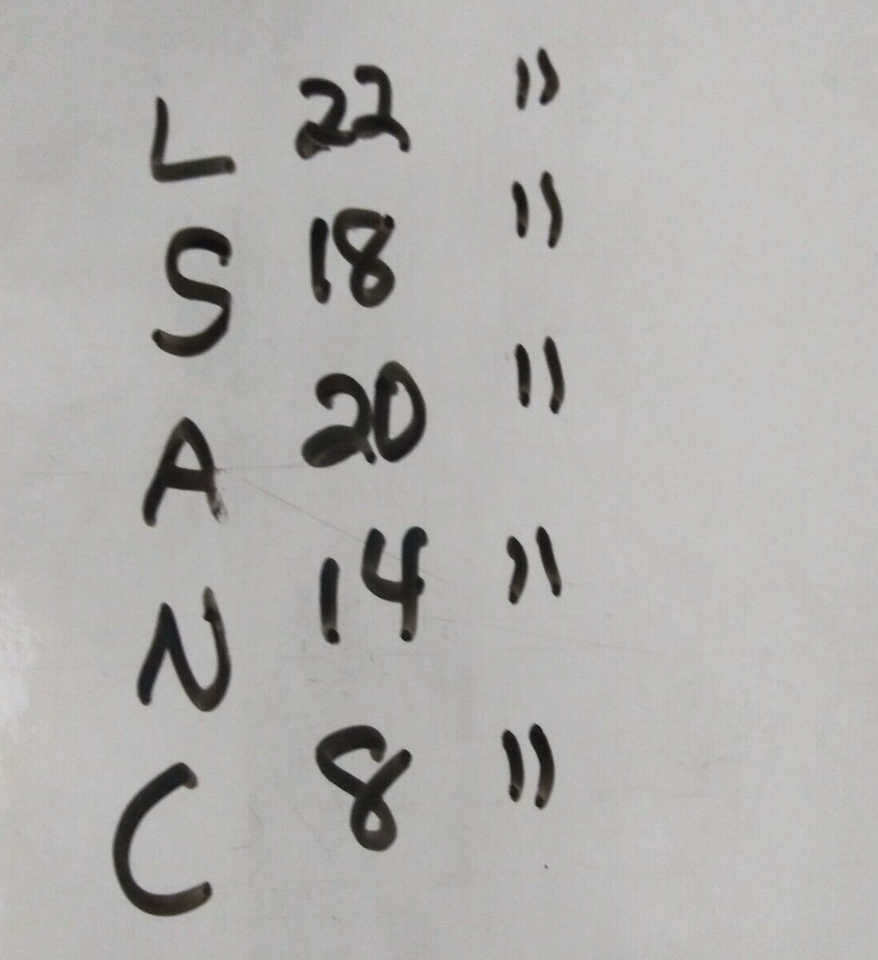 L 22 "
S 18 "
A 20 "
N 14 "
C 8 "